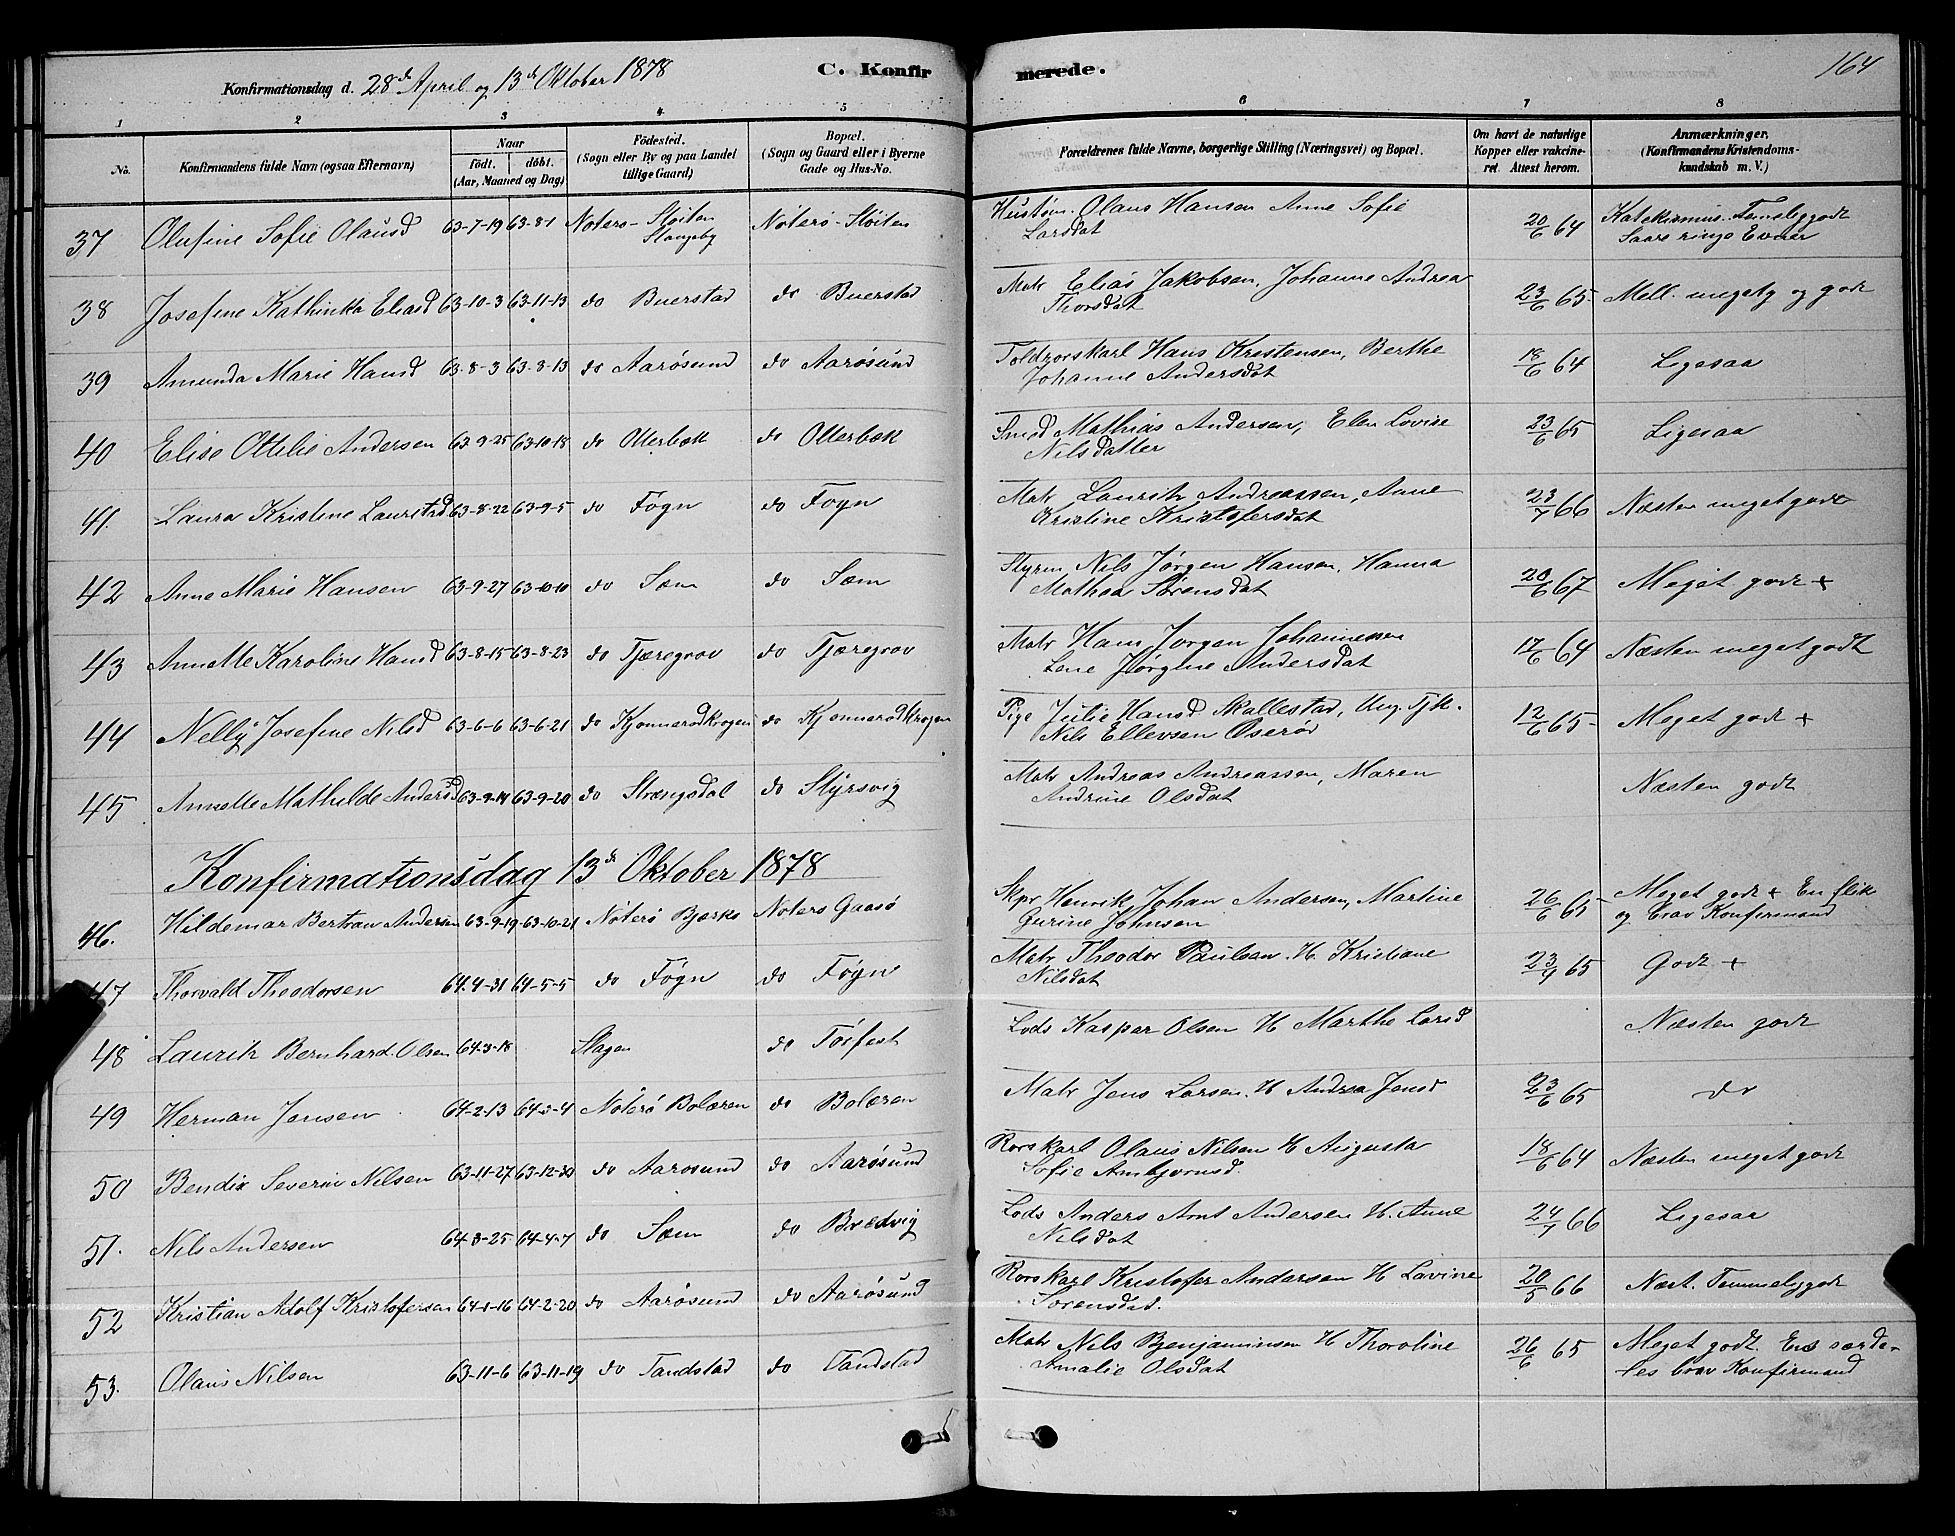 Konfirmationsdag d. 28de April og 13de Oktober 1878
C. Konfirmerede.
164
1 2 3 4 5 6 7 8
No.
Konfirmandens fulde Navn (ogsaa Efternavn)
Naar
födt. döbt.
(Aar, Maaned og Dag)
Födested.
(Sogn eller By og paa Landet
tillige Gaard)
Bopæl.
(Sogn og Gaard eller i Byerne
Gade og Hus-No.
Forældrenes fulde Navne, borgerlige Stilling (Næringsvei) og Bopæl.
Om havt de naturlige
Kopper eller vakcine-
ret. Attest herom.
Anmærkninger.
(Konfirmandens Kristendoms-
kundskab m. V.)
37 Olufine Sofie Olausd 63-7-19 63-8-1 Noterö - Sloiten Nöterö - Sloiten Hustøm. Olaus Hansen Anne Sofie 20/6 64 Katekismus Temeliggodt
Larsdat
38 Josefine Kathinka Eliasd 63-10-3 63-11-13 do Buerstad do Buerstad Matr Elias Jakobsen, Johanne Andrea 23/6 65 Mell. megetg og godt
Thorsdat
39 Amunda Marie Hansd 63-8-3 63-8-13 do Aarøsund do Aarøsund Toldrorskarl Hans Kristensen, Berthe 18/6 64 Ligesaa
Johanne Andersdat
40 Elise Ottilie Andersen 63-9-25 63-10-18 do Otterbæk do Otterbæk Smed Mathias Andersen, Elen Lovise 23/6 65 Ligesaa
Nilsdatter
41. Laura Kristine Lauritsd 63-8-22 63-9-5 do Føgn do Føgn Matr Laurits Andreassen, Anne 23/7 66 Næsten meget godt
Kristine Kristofersdat
42 Anne Marie Hansen 63-9-27 63-10-10 do Sæm do Sæm Styrm Nils Jørgen Hansen, Hanna 20/6 67 Meget godt +
Mathea Sørensdat
43 Annette Karoline Hansd 63-8-15 63-8-23 do Tjæregrov do Tjæregrov Matr Hans Jørgen Johannesen 17/6 64 Næsten meget godt
Lene Jørgine Andersdat
44 Nelly Josefine Nilsd 63-6-6 63-6-21 do Kjønnerødkrogen do Kjønnerødkrogen Pige Julie Hansd Skallestad, Ung Tjk. 12/6 65 Meget godt +
Nils Ellevsen Oserød
45 Annette Mathilde Andersd 63-9-14 63-9-20 do Strengsdal do Styrsvig Matr Andreas Andreassen, Maren Næsten godt
Andrine Olsdat
Konfirmationsdag 13de Oktober 1878
46. Hildemar Bertran Andersen 63-9-19 63-10-21 Nöterö Bjerke Noterö Gaasö Skpr Henrik Johan Andersen, Martine 26/6 65 Meget godt + En flik
Gurine Johnsen og brav Konfirmand
47 Thorvald Theodorsen 64-4-31 64-5-5 do Føgn do Føgn Matr Theodor Paulsen H Kristiane 23/4 65 Godt +
Nilsdat
48 Laurits Bernhard Olsen 64-3-18 Slagen do Torfest Lods Kaspar Olsen H Marthe Larsd Næsten godt
49 Herman Jensen 64-2-13 64-3-4 Nöterö Bolæren do Bolæren Matr Jens Larsen H Andrea Jensd 23/6 65 do
50 Bendix Severin Nilsen 63-11-27 63-12-30 do Aarosund do Aarøsund Rorskarl Olaus Nilsen H Augusta 18/6 64 Næsten meget godt
Sofie Ambjornsd.
51. Nils Andersen 64-3-25 64-4-7 do Sæm do Bredvig Lods Anders Arnt Andersen H. Anne 24/7 66 Ligesaa
Nilsdat
52 Kristian Adolf Kristofersen 64-1-16 64-2-20 do Aarøsund do Aarøsund Rorskarl Kristofer Andersen H Lavine 20/5 66 Næst. Temmeliggodt
Sorensdat.
53. Olaus Nilsen 63-11-6 63-11-19 do Tandstad do Tandstad Matr Nils Benjaminsen H Thoroline 26/6 65 Meget godt. En særde-
Amalie Olsdat les brav Konfirmand